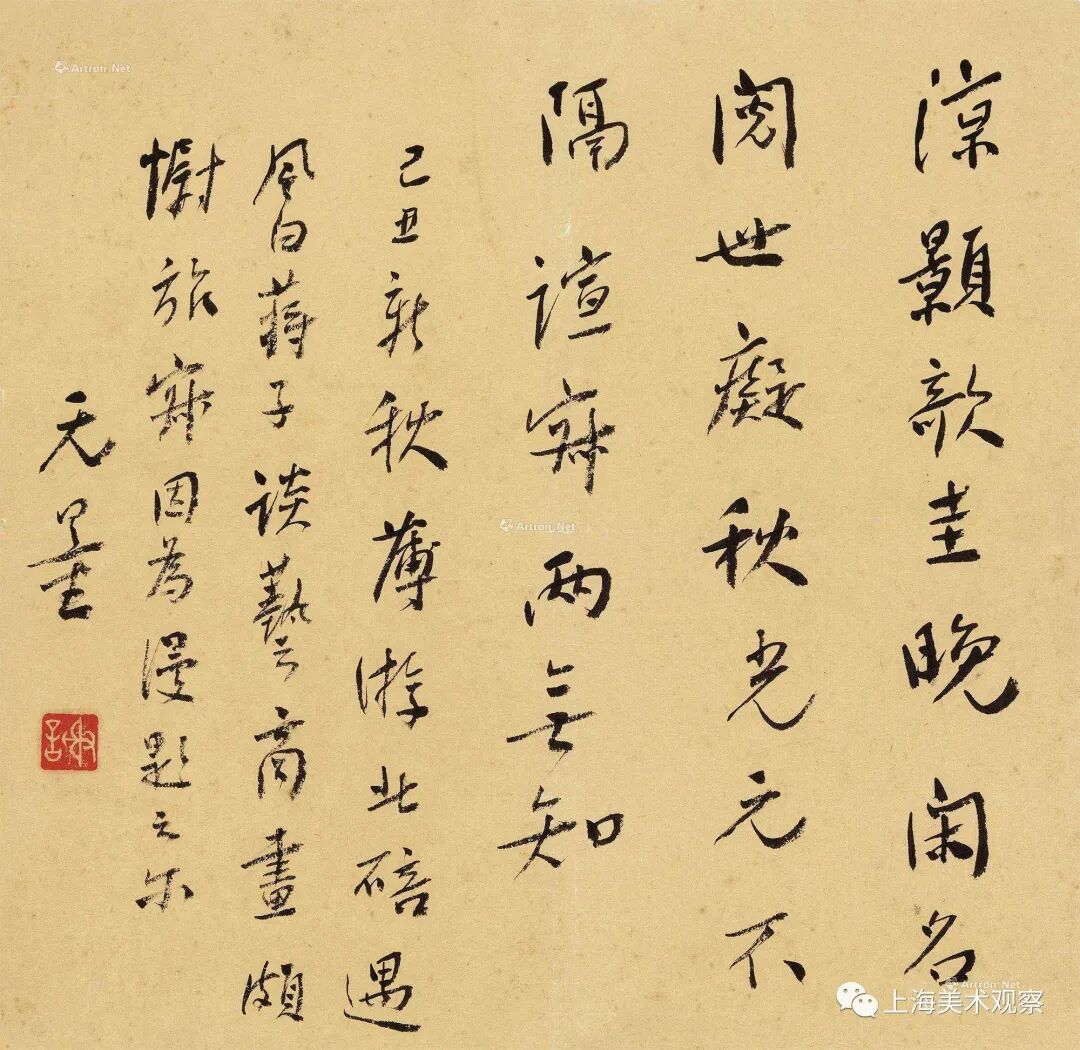 涼顥圭晚閑名
閱世癡秋光元不
隔諠寂兩无知
己丑新秋薄游北碚遇
風白蔣子談藝商畫頗
慰旅寂因為漫題之尔
无量
Artron.Net
Artron.Net
Artron.Net
上海美术观察